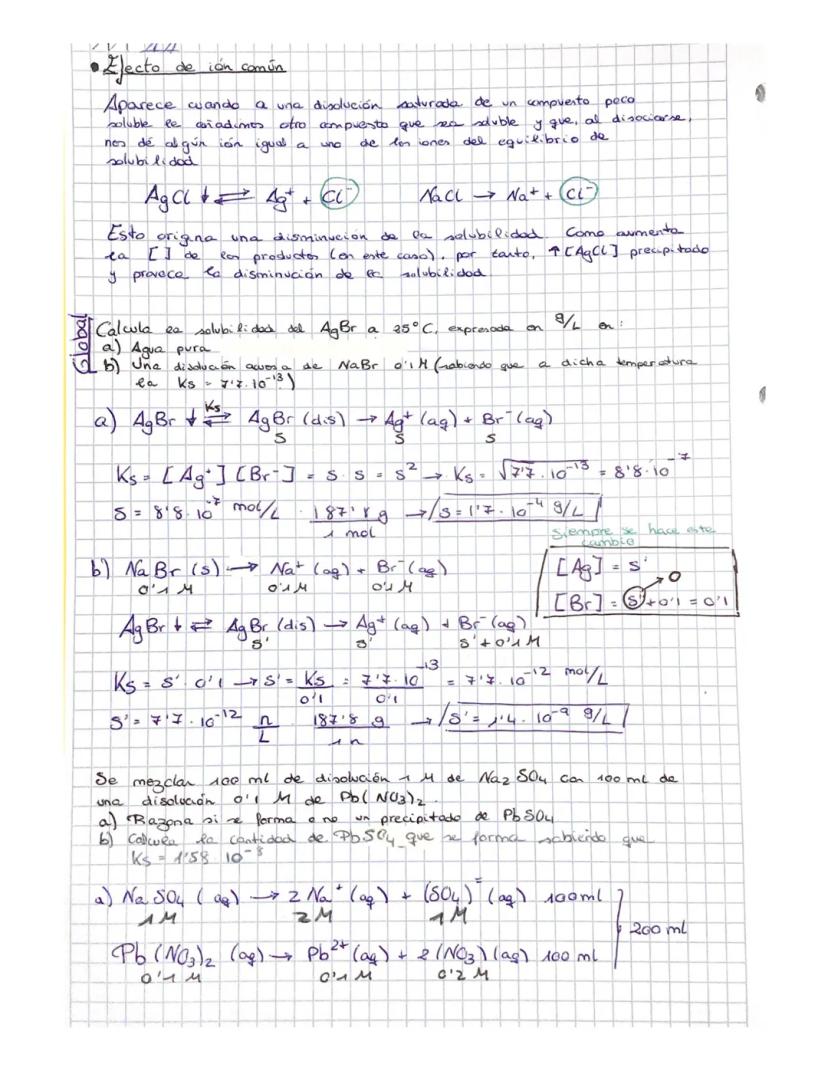 • Efecto de ión común
Aparece cuando a una disolución saturada de un compuesto poco
soluble le añadimos otro compuesto que sea soluble y que, al disociarse,
nos dé algún ión igual a uno de los iones del equilibrio de
solubilidad
AgCl ↓ ⇄ Ag⁺ + Cl⁻ NaCl → Na⁺ + Cl⁻
Esto origina una disminución de la solubilidad. Como aumenta
la [ ] de los productos (en este caso), por tanto, ↑ [AgCl] precipitado
y provoca la disminución de la solubilidad
Global
Calcula la solubilidad del AgBr a 25°C, expresada en g/L en:
a) Agua pura
b) Una disolución acuosa de NaBr 0'1 M (sabiendo que a dicha temperatura
la Ks = 7'7·10⁻¹³)
a) AgBr ↓ ⇄ Ks AgBr (dis) → Ag⁺ (aq) + Br⁻ (aq)
s s s
Ks = [Ag⁺] [Br⁻] = s·s = s² → Ks = √7'7·10⁻¹³ = 8'8·10⁻⁷
s = 8'8·10⁻⁷ mol/L · 187'8 g / 1 mol → s = 1'7·10⁻⁴ g/L
Siempre se hace este
cambio
b) NaBr (s) → Na⁺ (aq) + Br⁻ (aq)
0'1 M 0'1 M 0'1 M
[Ag] = s'
[Br] = s' + 0'1 = 0'1
→ 0
AgBr ↓ ⇄ AgBr (dis) → Ag⁺ (aq) + Br⁻ (aq)
s' s' s' + 0'1 M
Ks = s'·0'1 → s' = Ks / 0'1 = 7'7·10⁻¹³ / 0'1 = 7'7·10⁻¹² mol/L
s' = 7'7·10⁻¹² n/L 187'8 g / 1 n → s' = 1'4·10⁻⁹ g/L
Se mezclan 100 ml de disolución 1 M de Na₂SO₄ con 100 ml de
una disolución 0'1 M de Pb(NO₃)₂.
a) Razona si se forma o no un precipitado de PbSO₄
b) Calcula la cantidad de PbSO₄ que se forma sabiendo que
Ks = 1'58·10⁻⁸
a) NaSO₄ (aq) → 2 Na⁺ (aq) + (SO₄)⁼ (aq) 100 ml
1 M 2 M 1 M
200 ml
Pb(NO₃)₂ (aq) → Pb²⁺ (aq) + 2 (NO₃) (aq) 100 ml
0'1 M 0'1 M 0'2 M